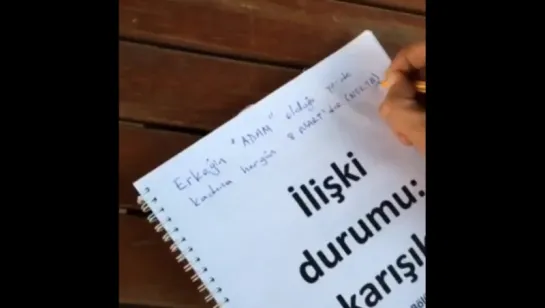 Erkeğin "ADAM" olduğu yerde
kadına hergün 8 MART'dır
İlişki
durumu:
karışık